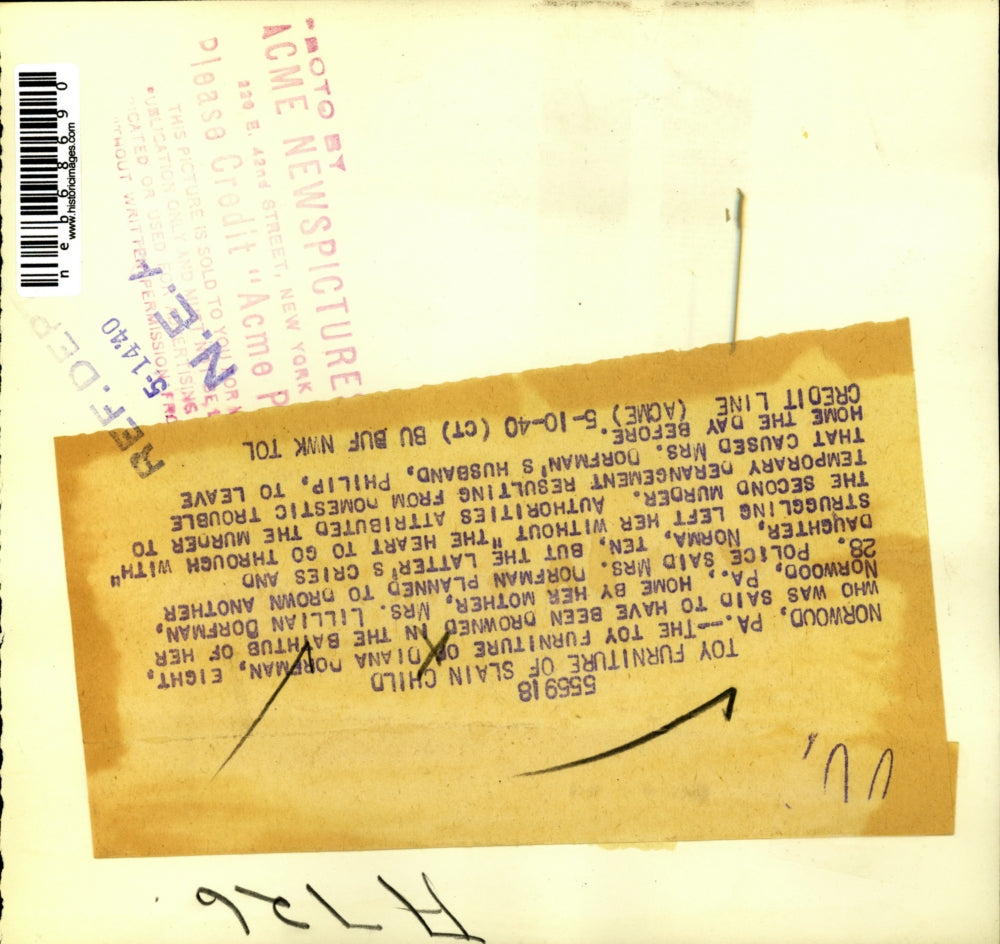 neb68690
www.historicimages.com
ACME NEWSPICTURES
220 E. 42nd STREET, NEW YORK
Please Credit "Acme P
THIS PICTURE IS SOLD TO YOU FOR
PUBLICATION ONLY AND MUST
OR USED FOR ADVERTISING
WITHOUT WRITTEN PERMISSION FRO
REF. DEP
5·14'40
N.E.A
555918
TOY FURNITURE OF SLAIN CHILD
NORWOOD, PA.--THE TOY FURNITURE OF DIANA DORFMAN, EIGHT,
WHO WAS SAID TO HAVE BEEN DROWNED IN THE BATHTUB OF HER
NORWOOD, PA., HOME BY HER MOTHER, MRS. LILLIAN DORFMAN,
28. POLICE SAID MRS. DORFMAN PLANNED TO DROWN ANOTHER
DAUGHTER, NORMA, TEN, BUT THE LATTER'S CRIES AND
STRUGGLING LEFT HER WITHOUT "THE HEART TO GO THROUGH WITH"
THE SECOND MURDER. AUTHORITIES ATTRIBUTED THE MURDER TO
TEMPORARY DERANGEMENT RESULTING FROM DOMESTIC TROUBLE
THAT CAUSED MRS. DORFMAN'S HUSBAND, PHILIP, TO LEAVE
HOME THE DAY BEFORE.
CREDIT LINE (ACME) 5-10-40 (CT) BU BUF NWK TOL